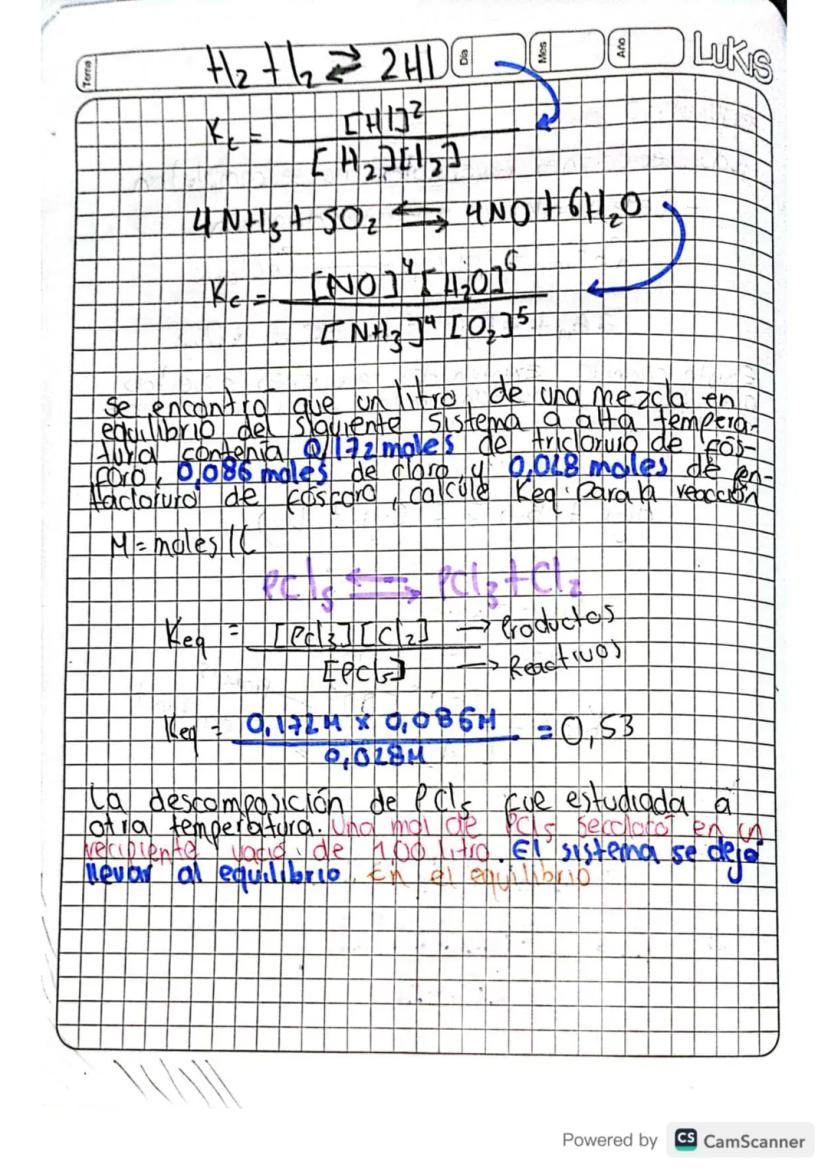 Tema
H₂ + I₂ ⇄ 2HI
Día
Mes
Año
LUKIS
Kc = [HI]² / [H₂][I₂]
4NH₃ + 5O₂ ⇆ 4NO + 6H₂O
Kc = [NO]⁴[H₂O]⁶ / [NH₃]⁴ [O₂]⁵
Se encontró que un litro de una mezcla en
equilibrio del siguiente sistema a alta tempera-
tura contenía 0,172 moles de tricloruro de fós-
foro, 0,086 moles de cloro y 0,028 moles de pen-
tacloruro de fósforo, calcule Keq. Para la reacción
M = moles/L
PCl₅ ⇆ PCl₃ + Cl₂
Keq = [PCl₃][Cl₂] → Productos
[PCl₅] → Reactivos
Keq = 0,172M x 0,086M / 0,028M = 0,53
La descomposición de PCl₅ fue estudiada a
otra temperatura. Una mol de PCl₅ se colocó en un
recipiente vacío de 1,00 litro. El sistema se dejó
llevar al equilibrio. En el equilibrio
Powered by CS CamScanner